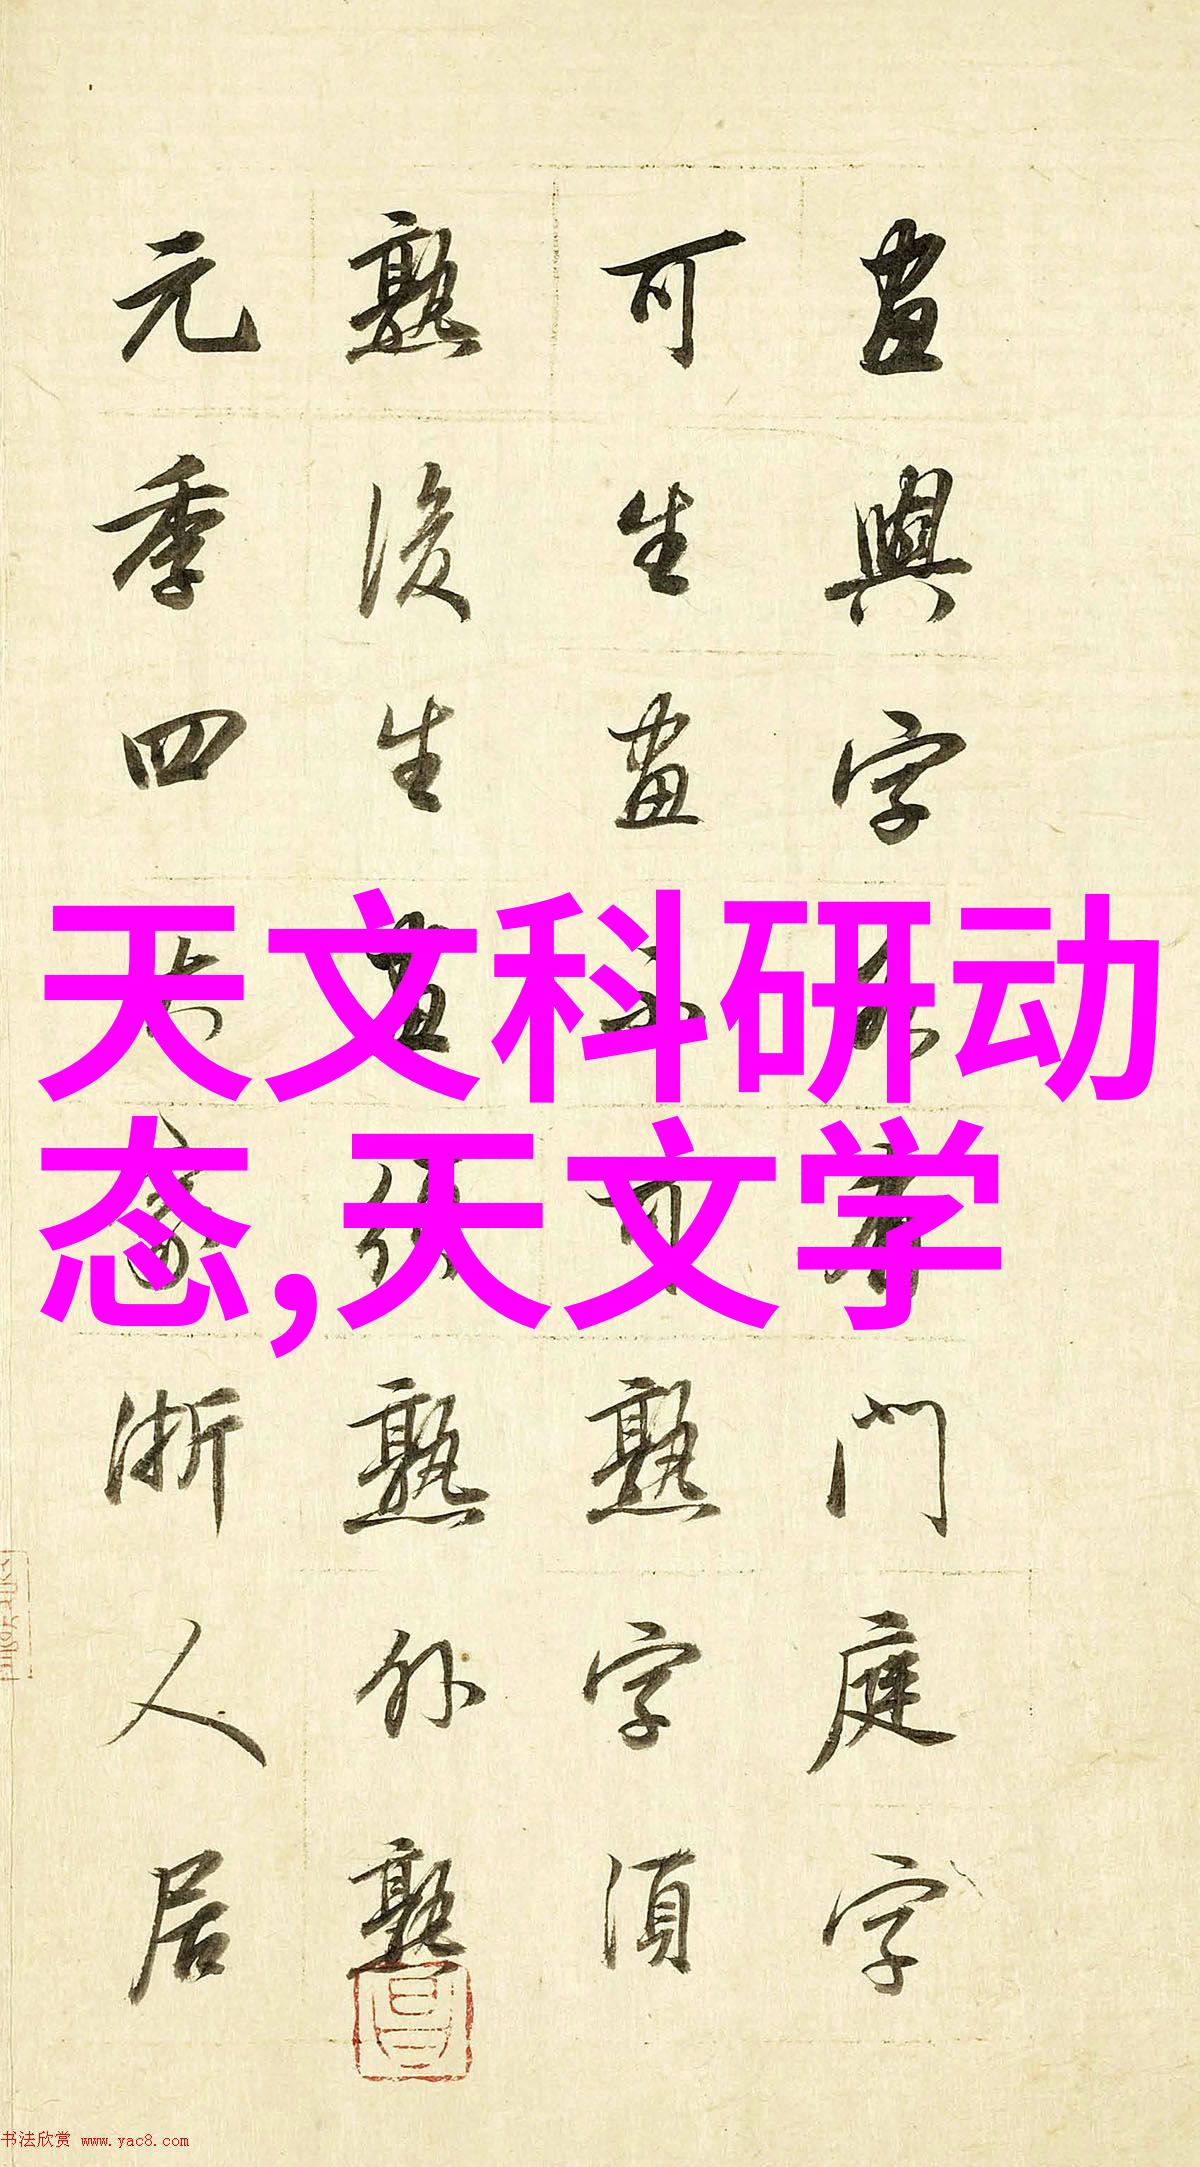 畫與字各有門庭字
可生畫不可熟字須
熟後生畫須熟外熟
元季四大家浙人居
天文科研动
态,天文学
书法欣赏 www.yac8.com